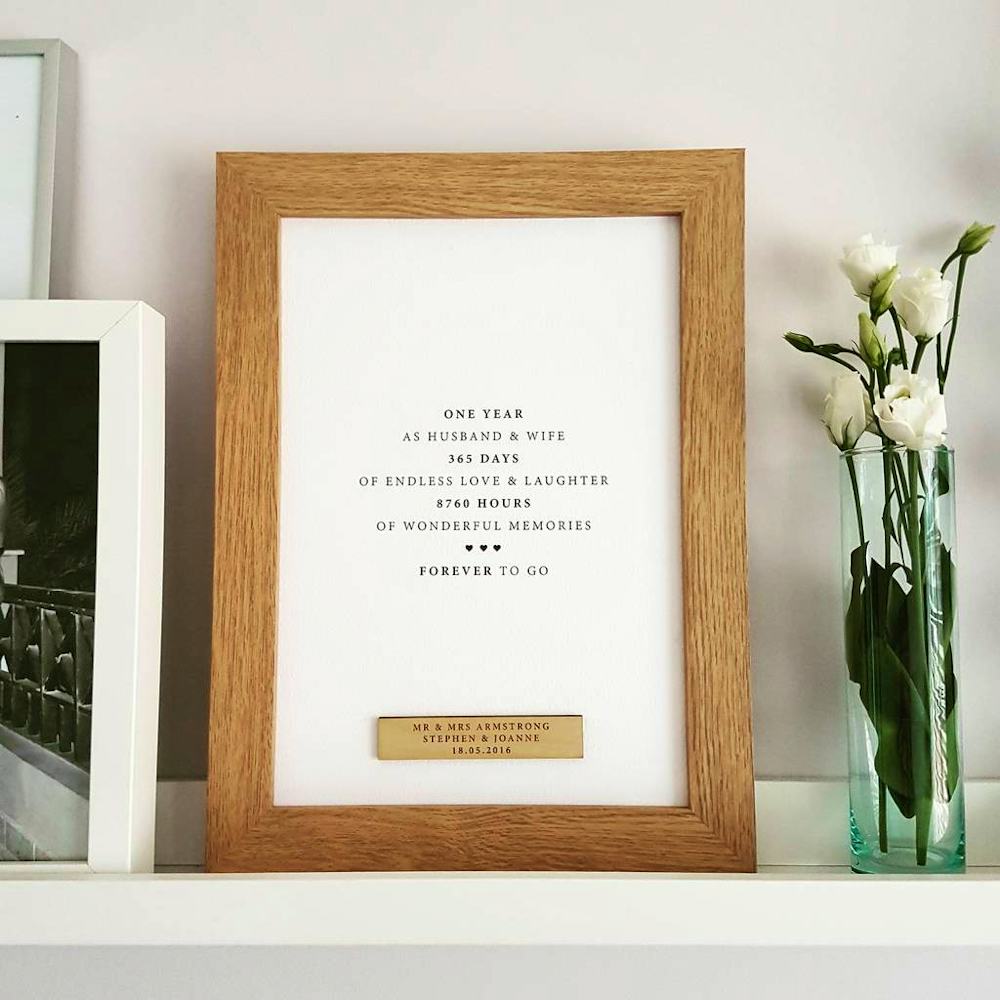 ONE YEAR
AS HUSBAND & WIFE
365 DAYS
OF ENDLESS LOVE & LAUGHTER
8760 HOURS
OF WONDERFUL MEMORIES
♥ ♥ ♥
FOREVER TO GO
MR & MRS ARMSTRONG
STEPHEN & JOANNE
18.05.2016